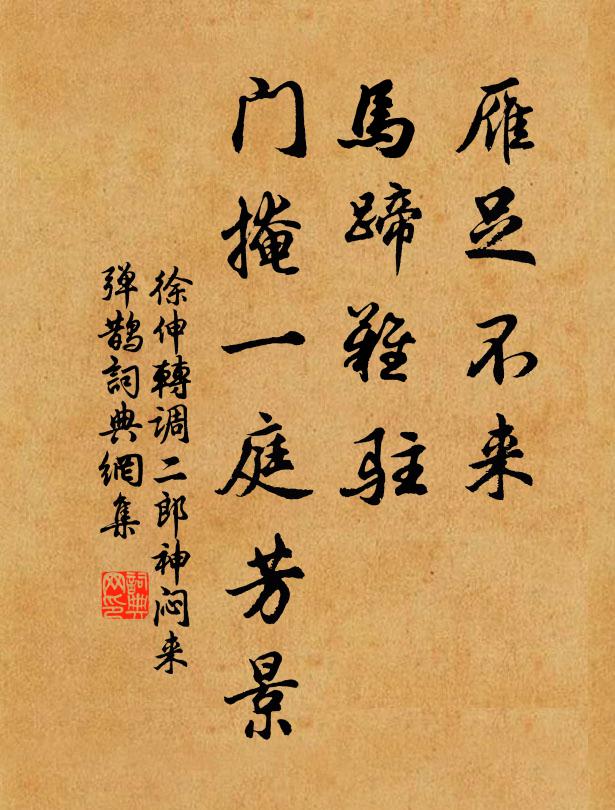 雁足不来
馬蹄難駐
门掩一庭芳景
徐伸轉调二郎神闷来
弹鹊詞典網集
詞典网印